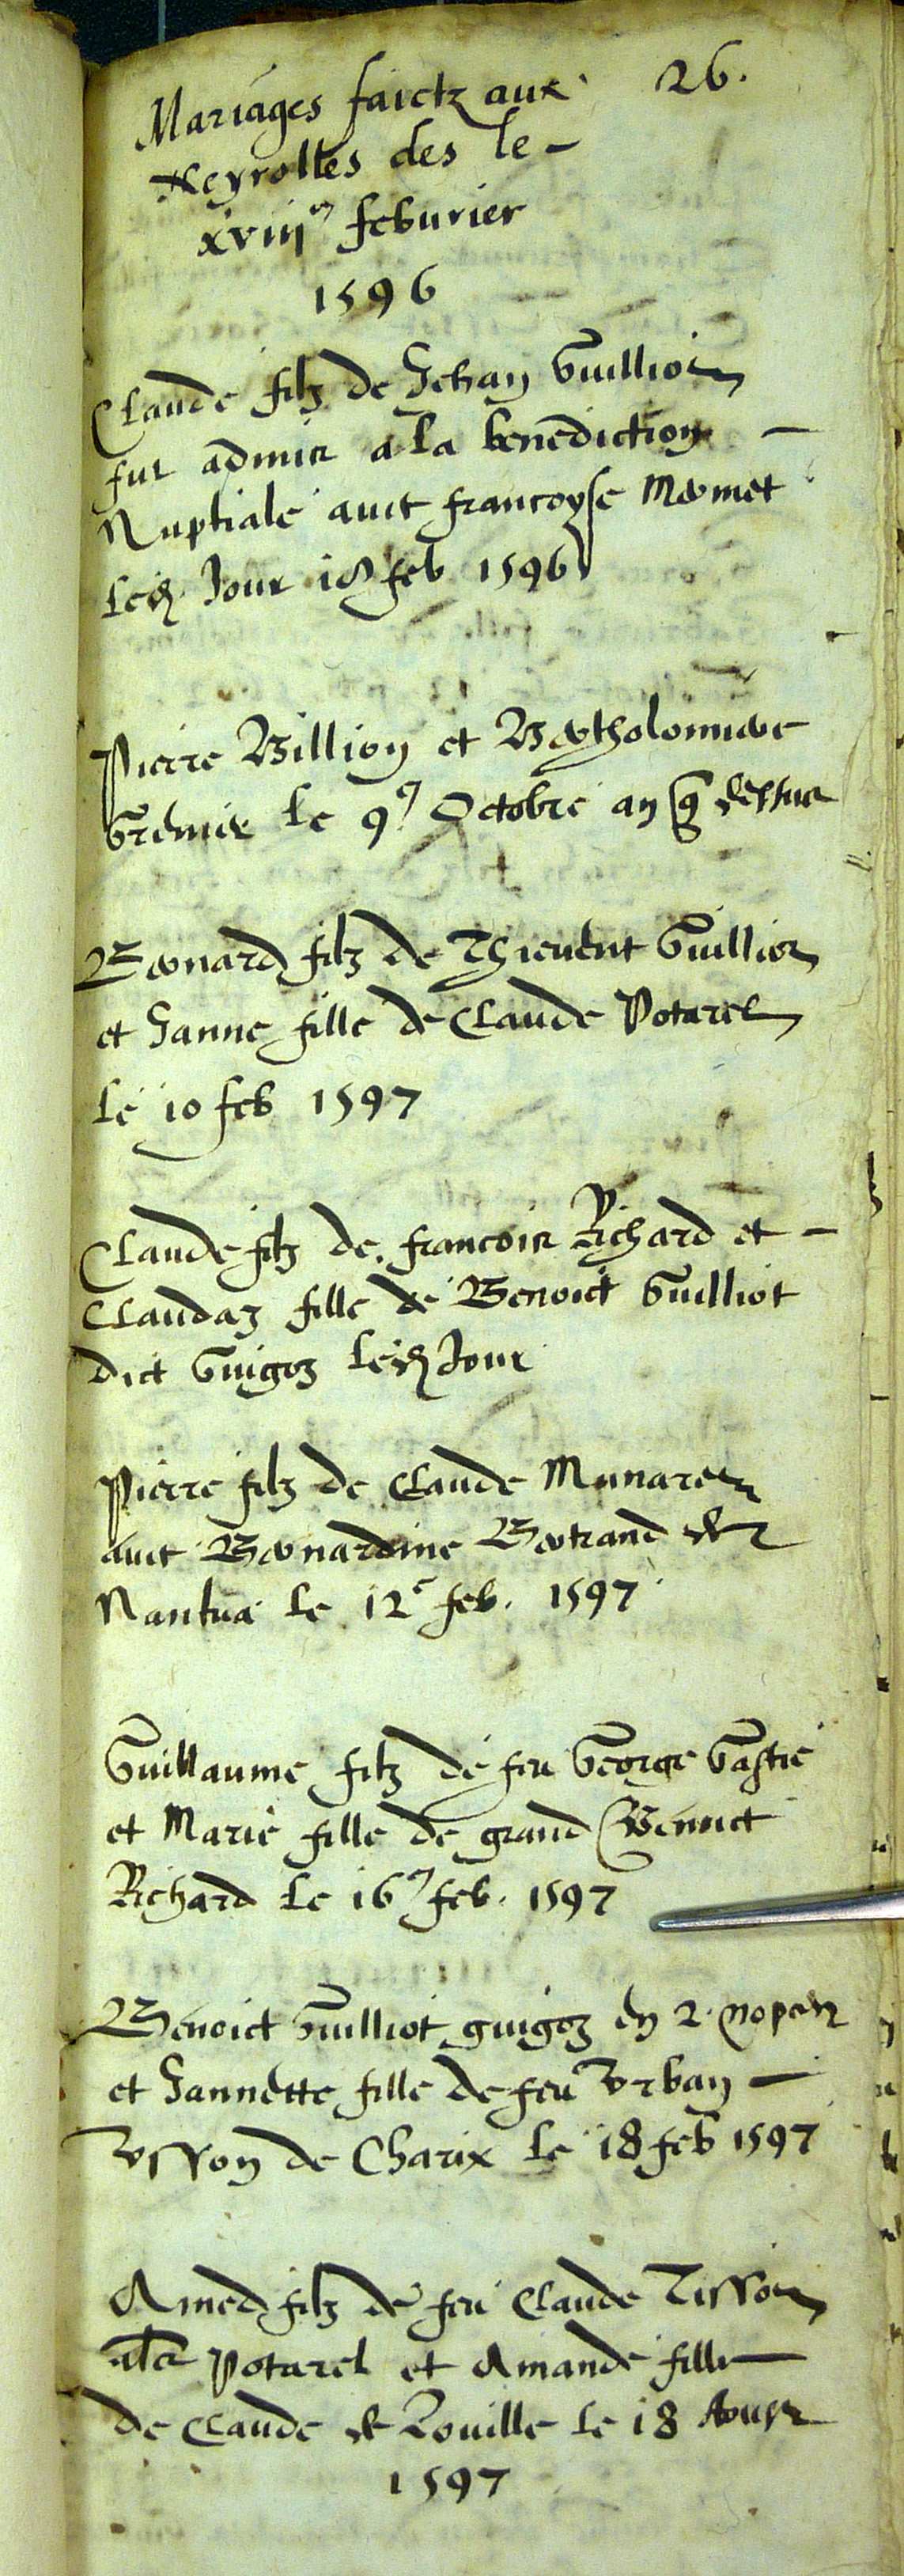 Mariages faictz aux 26.
Neyrolles des le -
xviije febvrier
1596
Claude filz de Jehan Guillion
fut admis a la benediction -
Nuptiale avec francoyse Mermet
led. Jour 18 feb 1596
Pierre Billion et Bertholomiere
le 9e Octobre an q dessus
Bernard filz de Thievent Guillion
et Janne fille de Claude Potarel
le 10 feb 1597
Claude filz de francois Richard et -
Claudaz fille de Benoict Guilliot
dict Guigoz led. Jour
Pierre filz de Claude Munaret
avec Bernardine Bertrand de
Nantua le 12e feb. 1597
Guillaume filz de feu George Gastie
et Marie fille de grand Benoict
Richard le 16e feb. 1597
Benoict Guilliot guigoz en 2. nopces
et Jannette fille de feu Urban -
Usson de Charix le 18 feb 1597
Amed filz de feu Claude Tisson
als Potarel et Amande fille -
de Claude de Douille le 18
1597